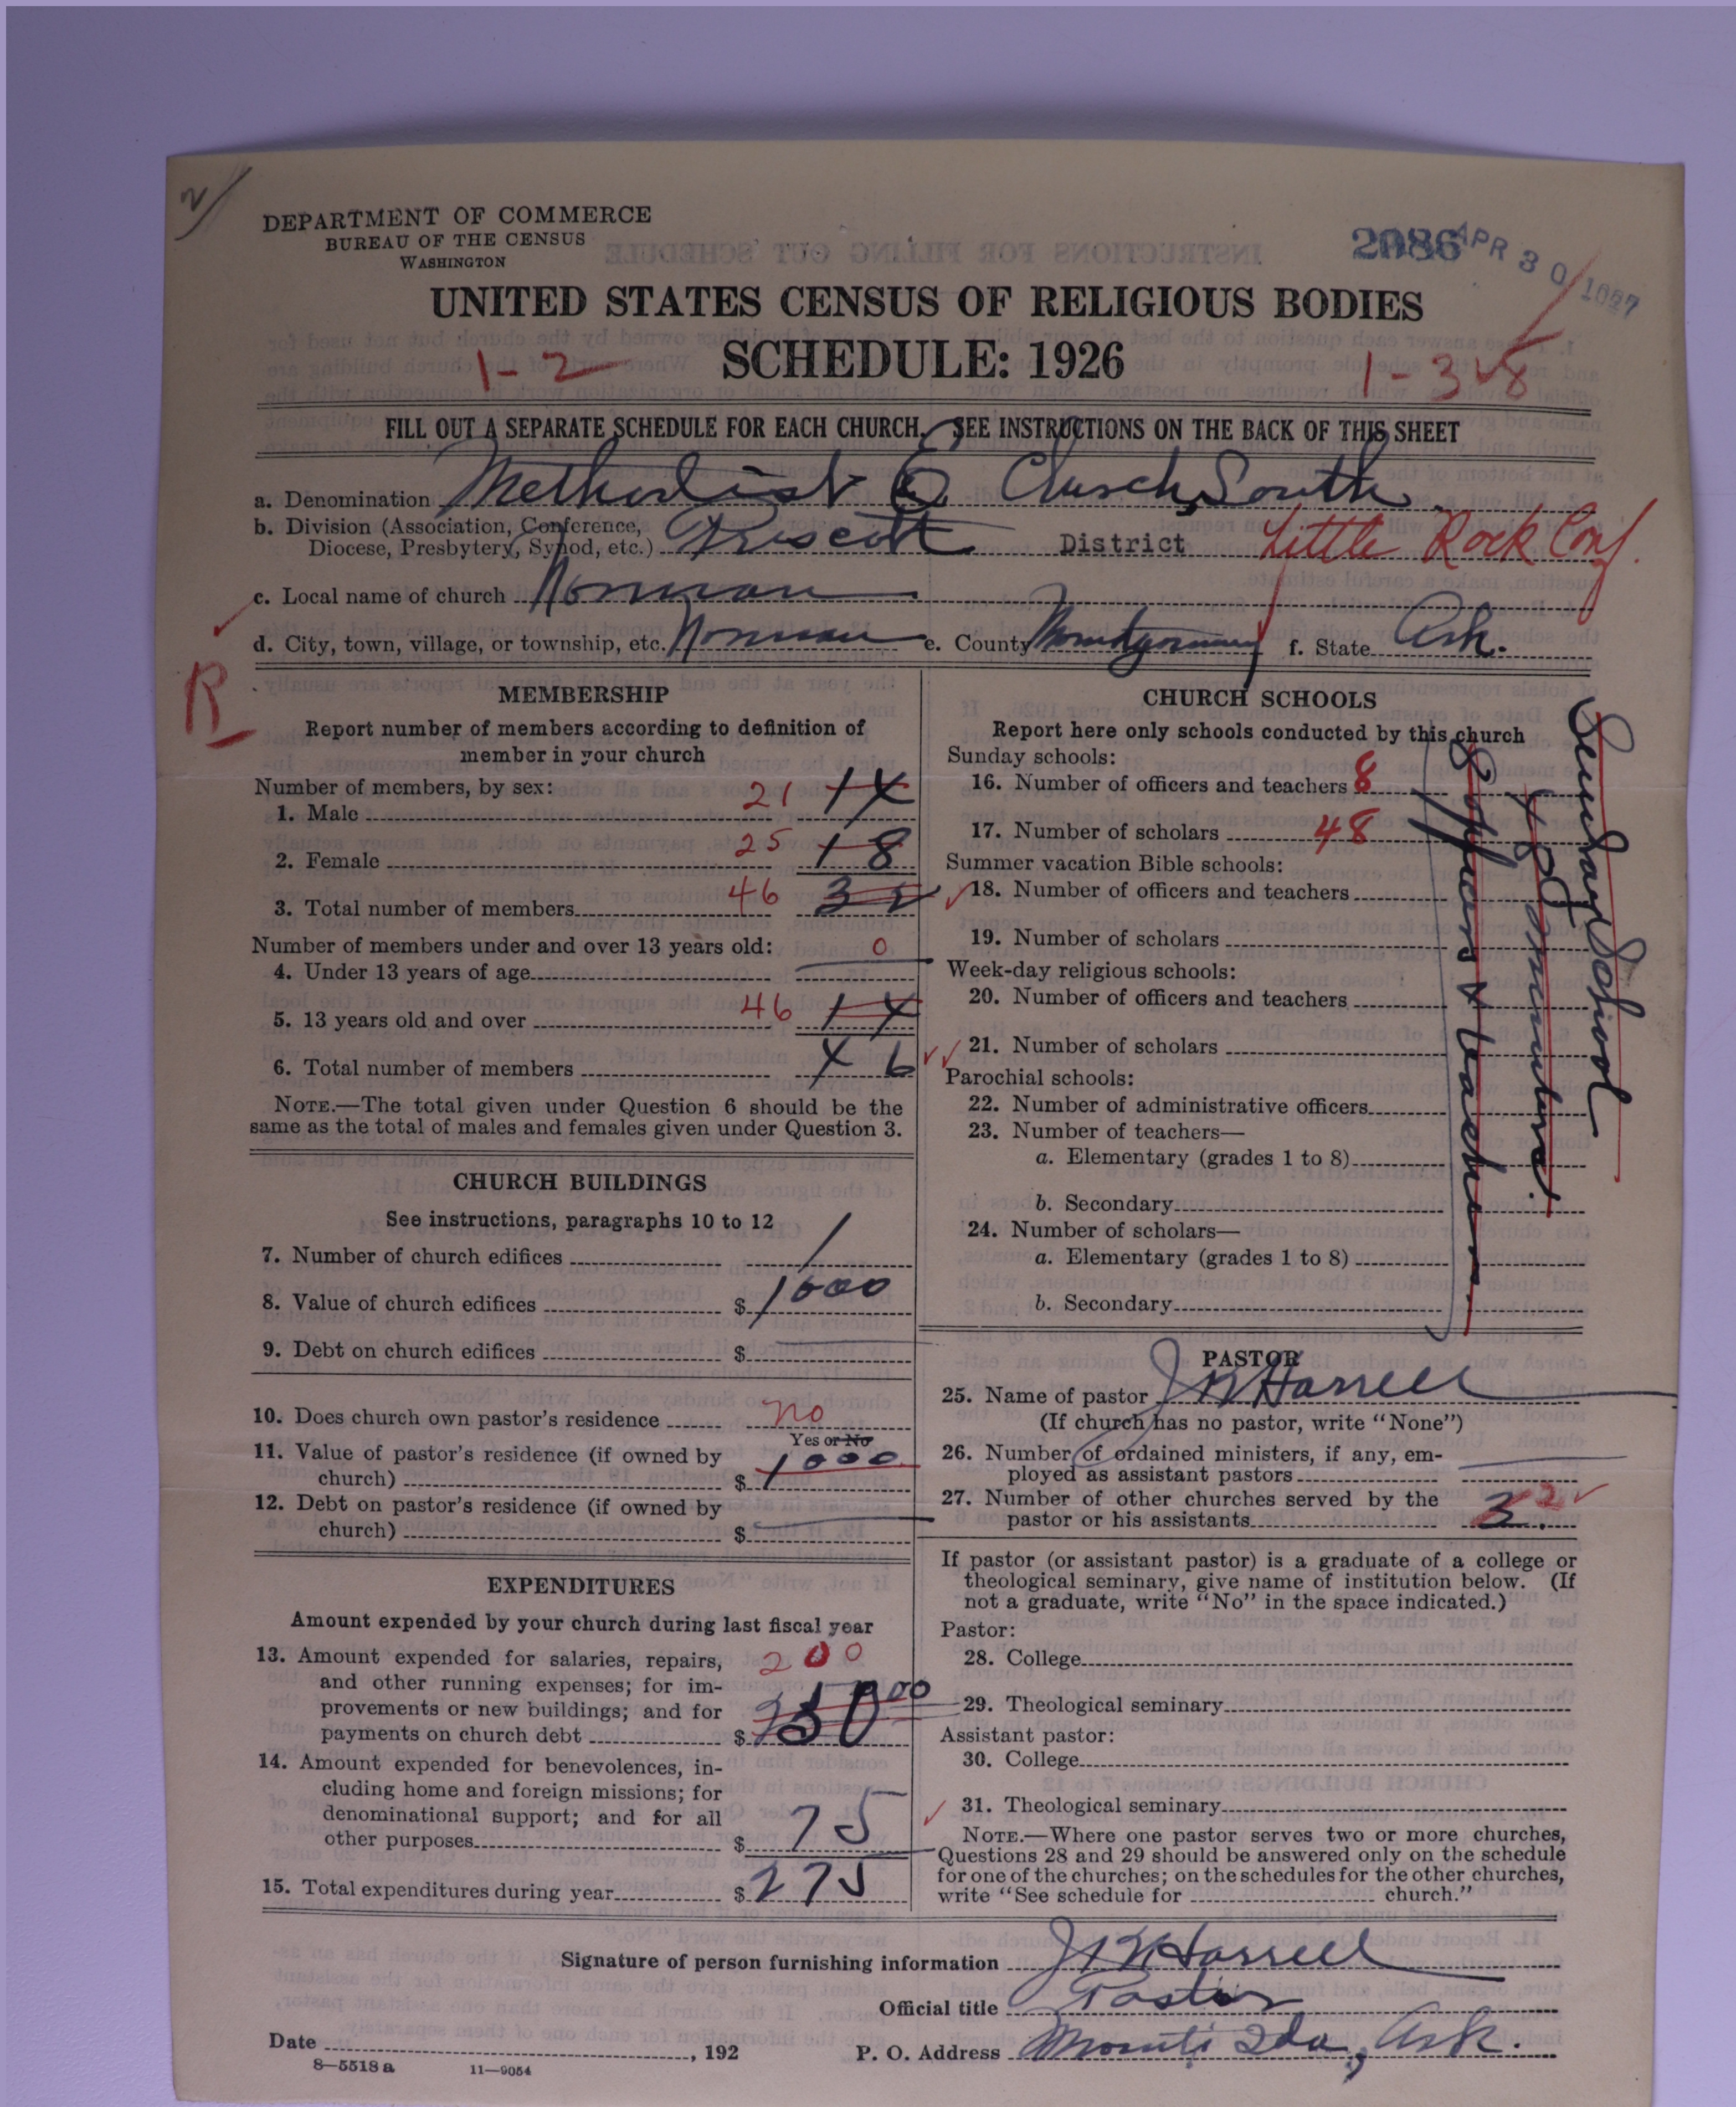 DEPARTMENT OF COMMERCE
BUREAU OF THE CENSUS
WASHINGTON
2086
APR 30 1927
UNITED STATES CENSUS OF RELIGIOUS BODIES
SCHEDULE: 1926
1-2
1-3
FILL OUT A SEPARATE SCHEDULE FOR EACH CHURCH. SEE INSTRUCTIONS ON THE BACK OF THIS SHEET
a. Denomination Methodist E Church, South
b. Division (Association, Conference,
Diocese, Presbytery, Synod, etc.) Prescott District Little Rock Conf.
c. Local name of church Norman
d. City, town, village, or township, etc. Norman e. County Montgomery f. State Ark.
R
MEMBERSHIP
Report number of members according to definition of
member in your church
Number of members, by sex:
1. Male 21 14
2. Female 25 18
3. Total number of members 46 32
Number of members under and over 13 years old:
4. Under 13 years of age 0
5. 13 years old and over 46 14
6. Total number of members 46
NOTE.—The total given under Question 6 should be the
same as the total of males and females given under Question 3.
CHURCH BUILDINGS
See instructions, paragraphs 10 to 12
7. Number of church edifices 1
8. Value of church edifices $ 1000
9. Debt on church edifices $
10. Does church own pastor's residence no
Yes or No
11. Value of pastor's residence (if owned by
church) $ 1000
12. Debt on pastor's residence (if owned by
church) $
EXPENDITURES
Amount expended by your church during last fiscal year
13. Amount expended for salaries, repairs,
and other running expenses; for im-
provements or new buildings; and for
payments on church debt $ 200
14. Amount expended for benevolences, in-
cluding home and foreign missions; for
denominational support; and for all
other purposes $ 75
15. Total expenditures during year $ 275
CHURCH SCHOOLS
Report here only schools conducted by this church
Sunday schools:
16. Number of officers and teachers 8
17. Number of scholars 48
Summer vacation Bible schools:
18. Number of officers and teachers
19. Number of scholars
Week-day religious schools:
20. Number of officers and teachers
21. Number of scholars
Parochial schools:
22. Number of administrative officers
23. Number of teachers—
a. Elementary (grades 1 to 8)
b. Secondary
24. Number of scholars—
a. Elementary (grades 1 to 8)
b. Secondary
Sunday School
48
8 officers & teachers
PASTOR
25. Name of pastor J W Harrell
(If church has no pastor, write "None")
26. Number of ordained ministers, if any, em-
ployed as assistant pastors
27. Number of other churches served by the
pastor or his assistants 3. 2
If pastor (or assistant pastor) is a graduate of a college or
theological seminary, give name of institution below. (If
not a graduate, write "No" in the space indicated.)
Pastor:
28. College
29. Theological seminary
Assistant pastor:
30. College
31. Theological seminary
NOTE.—Where one pastor serves two or more churches,
Questions 28 and 29 should be answered only on the schedule
for one of the churches; on the schedules for the other churches,
write "See schedule for church."
Signature of person furnishing information J W Harrell
Official title Pastor
Date , 192 P. O. Address Mount Ida, Ark.
8—5518 a 11—9054